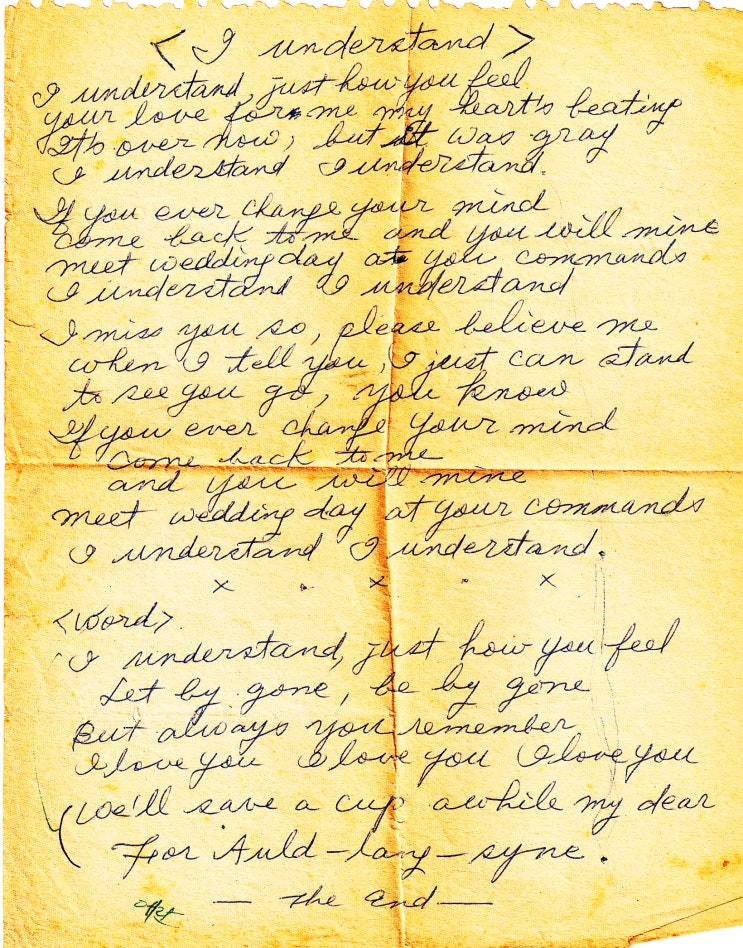 < I understand >
I understand, just how you feel
your love for me my heart's beating
It's over now, but it was gray
I understand I understand.
If you ever change your mind
come back to me and you will mine
meet wedding day at you commands
I understand I understand
I miss you so, please believe me
when I tell you, I just can stand
to see you go, you know
If you ever change your mind
come back to me
and you will mine
meet wedding day at your commands
I understand I understand.
x . x . x
<word>
I understand, just how you feel
Let by gone, be by gone
But always you remember
I love you I love you I love you
We'll save a cup awhile my dear
For Auld-lang-syne.
— The End —